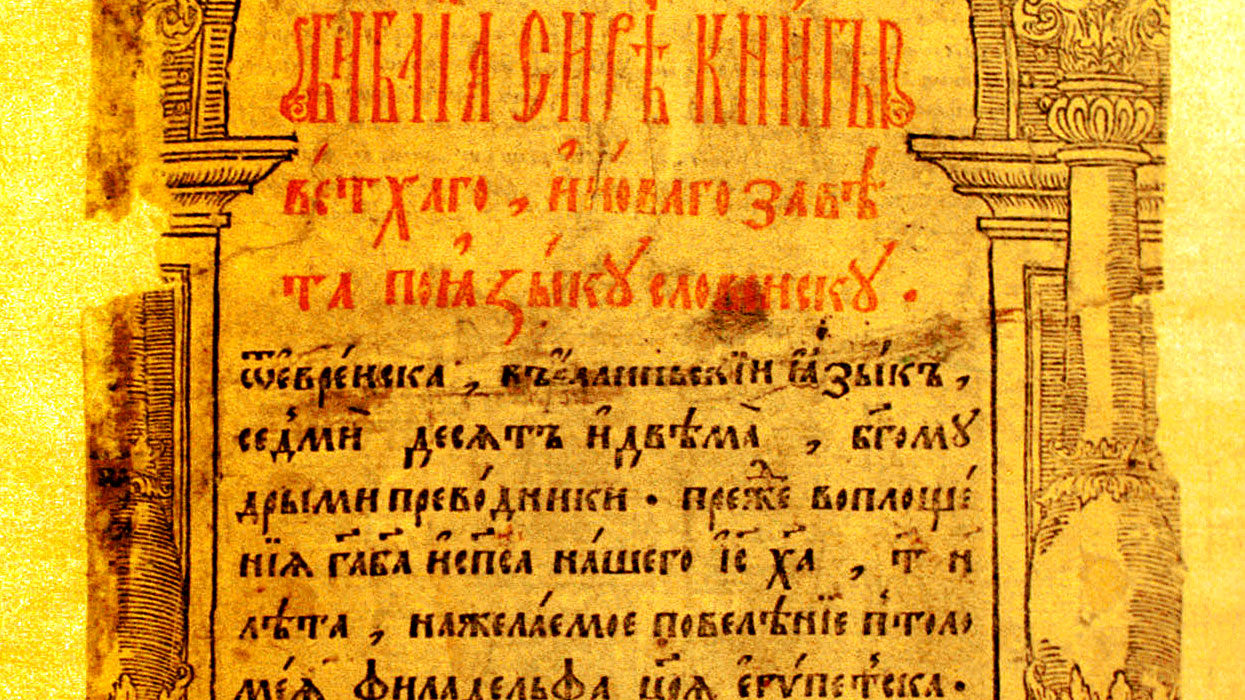 БИБЛЇА СИРѢ КНИ́ГЪ
ве́тхаго , и҆но́ваго завѣ
та поꙗ҆зы́ку слове́нску .
ѿевре́йска , въе҆ллиньскїй ꙗ҆зы́къ ,
се́дмй десятъ и҆двѣма̀ , бг҃ому
дрыми прево́дники . преⷤже воплоще́
нїѧ гд҃а бг҃а и҆сп҃са на́шего і҆с҃ хр҃та̀ , т҃ н
лѣта , нажела́емое повелѣ́нїе пⷮоло
ме́ѧ филаде́льфа цр҃ѧ є҆гѵпетска .